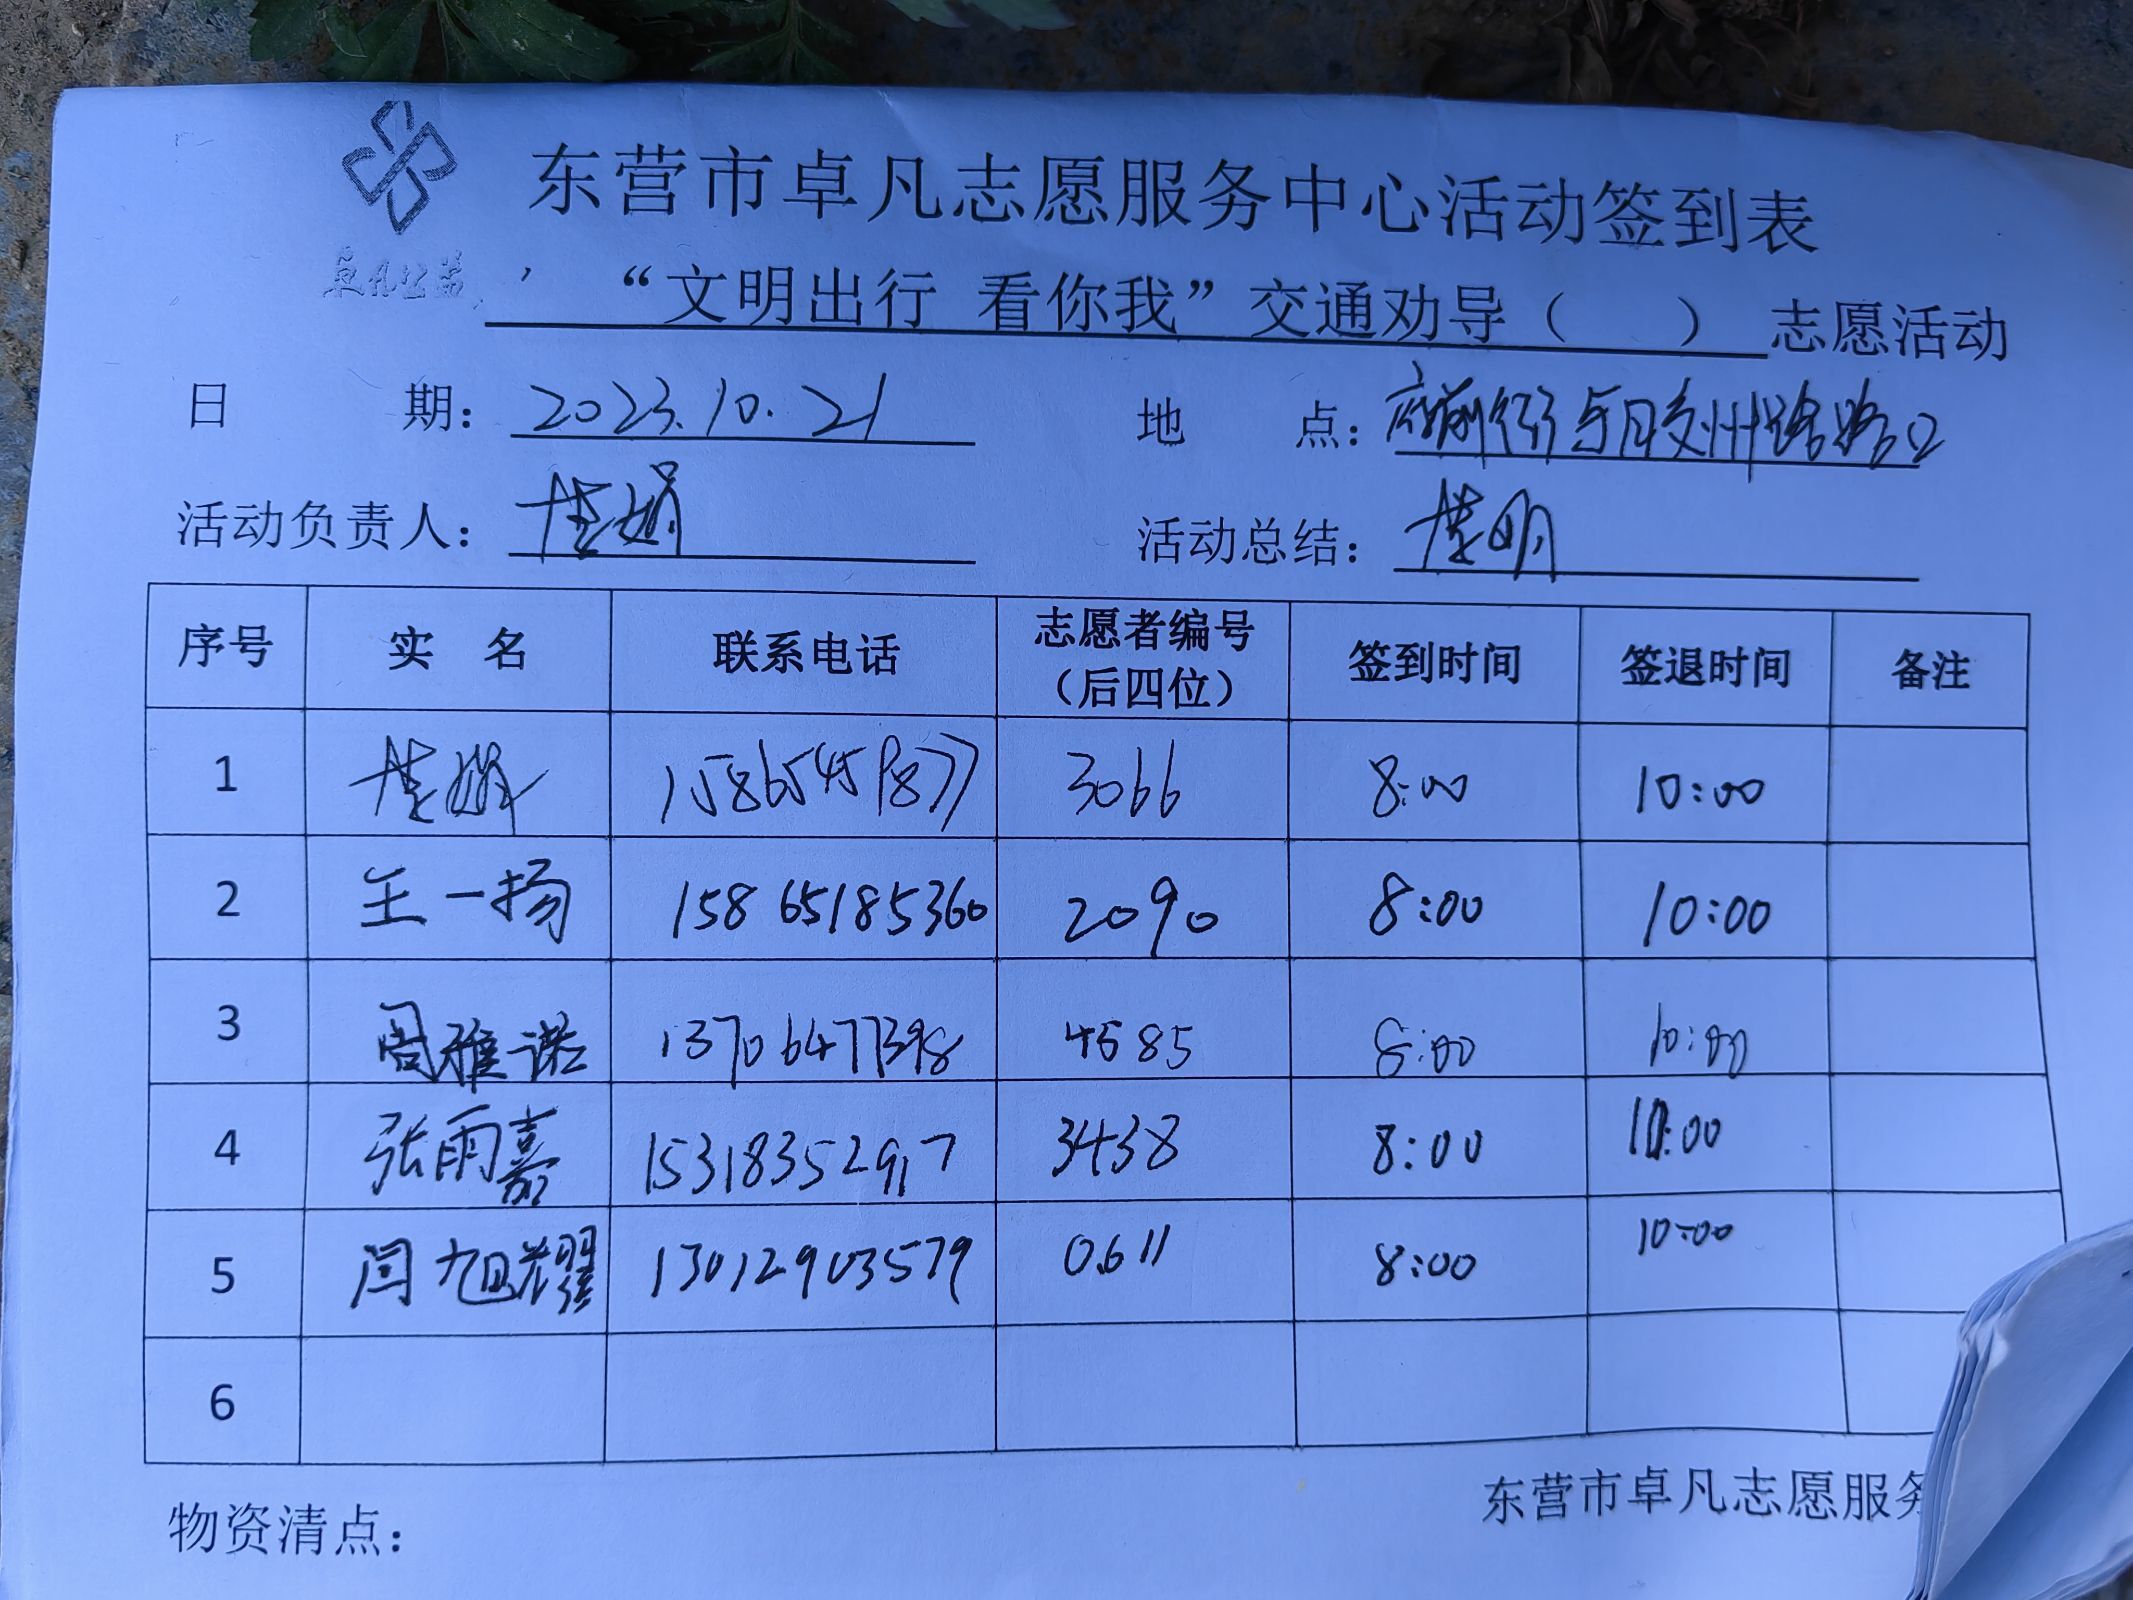 东营市卓凡志愿服务中心活动签到表
卓凡公益
“文明出行 看你我”交通劝导（ ）志愿活动
日 期：2023.10.21 地 点：府前街与胶州路路口
活动负责人： 活动总结：
序号 实 名 联系电话 志愿者编号（后四位） 签到时间 签退时间 备注
1 15865459877 3066 8:00 10:00
2 王一扬 15865185360 2090 8:00 10:00
3 周雅诺 13706477398 4585 8:00 10:00
4 张雨嘉 15318352917 3438 8:00 10:00
5 闫旭耀 13012903579 0611 8:00 10:00
6
物资清点： 东营市卓凡志愿服务